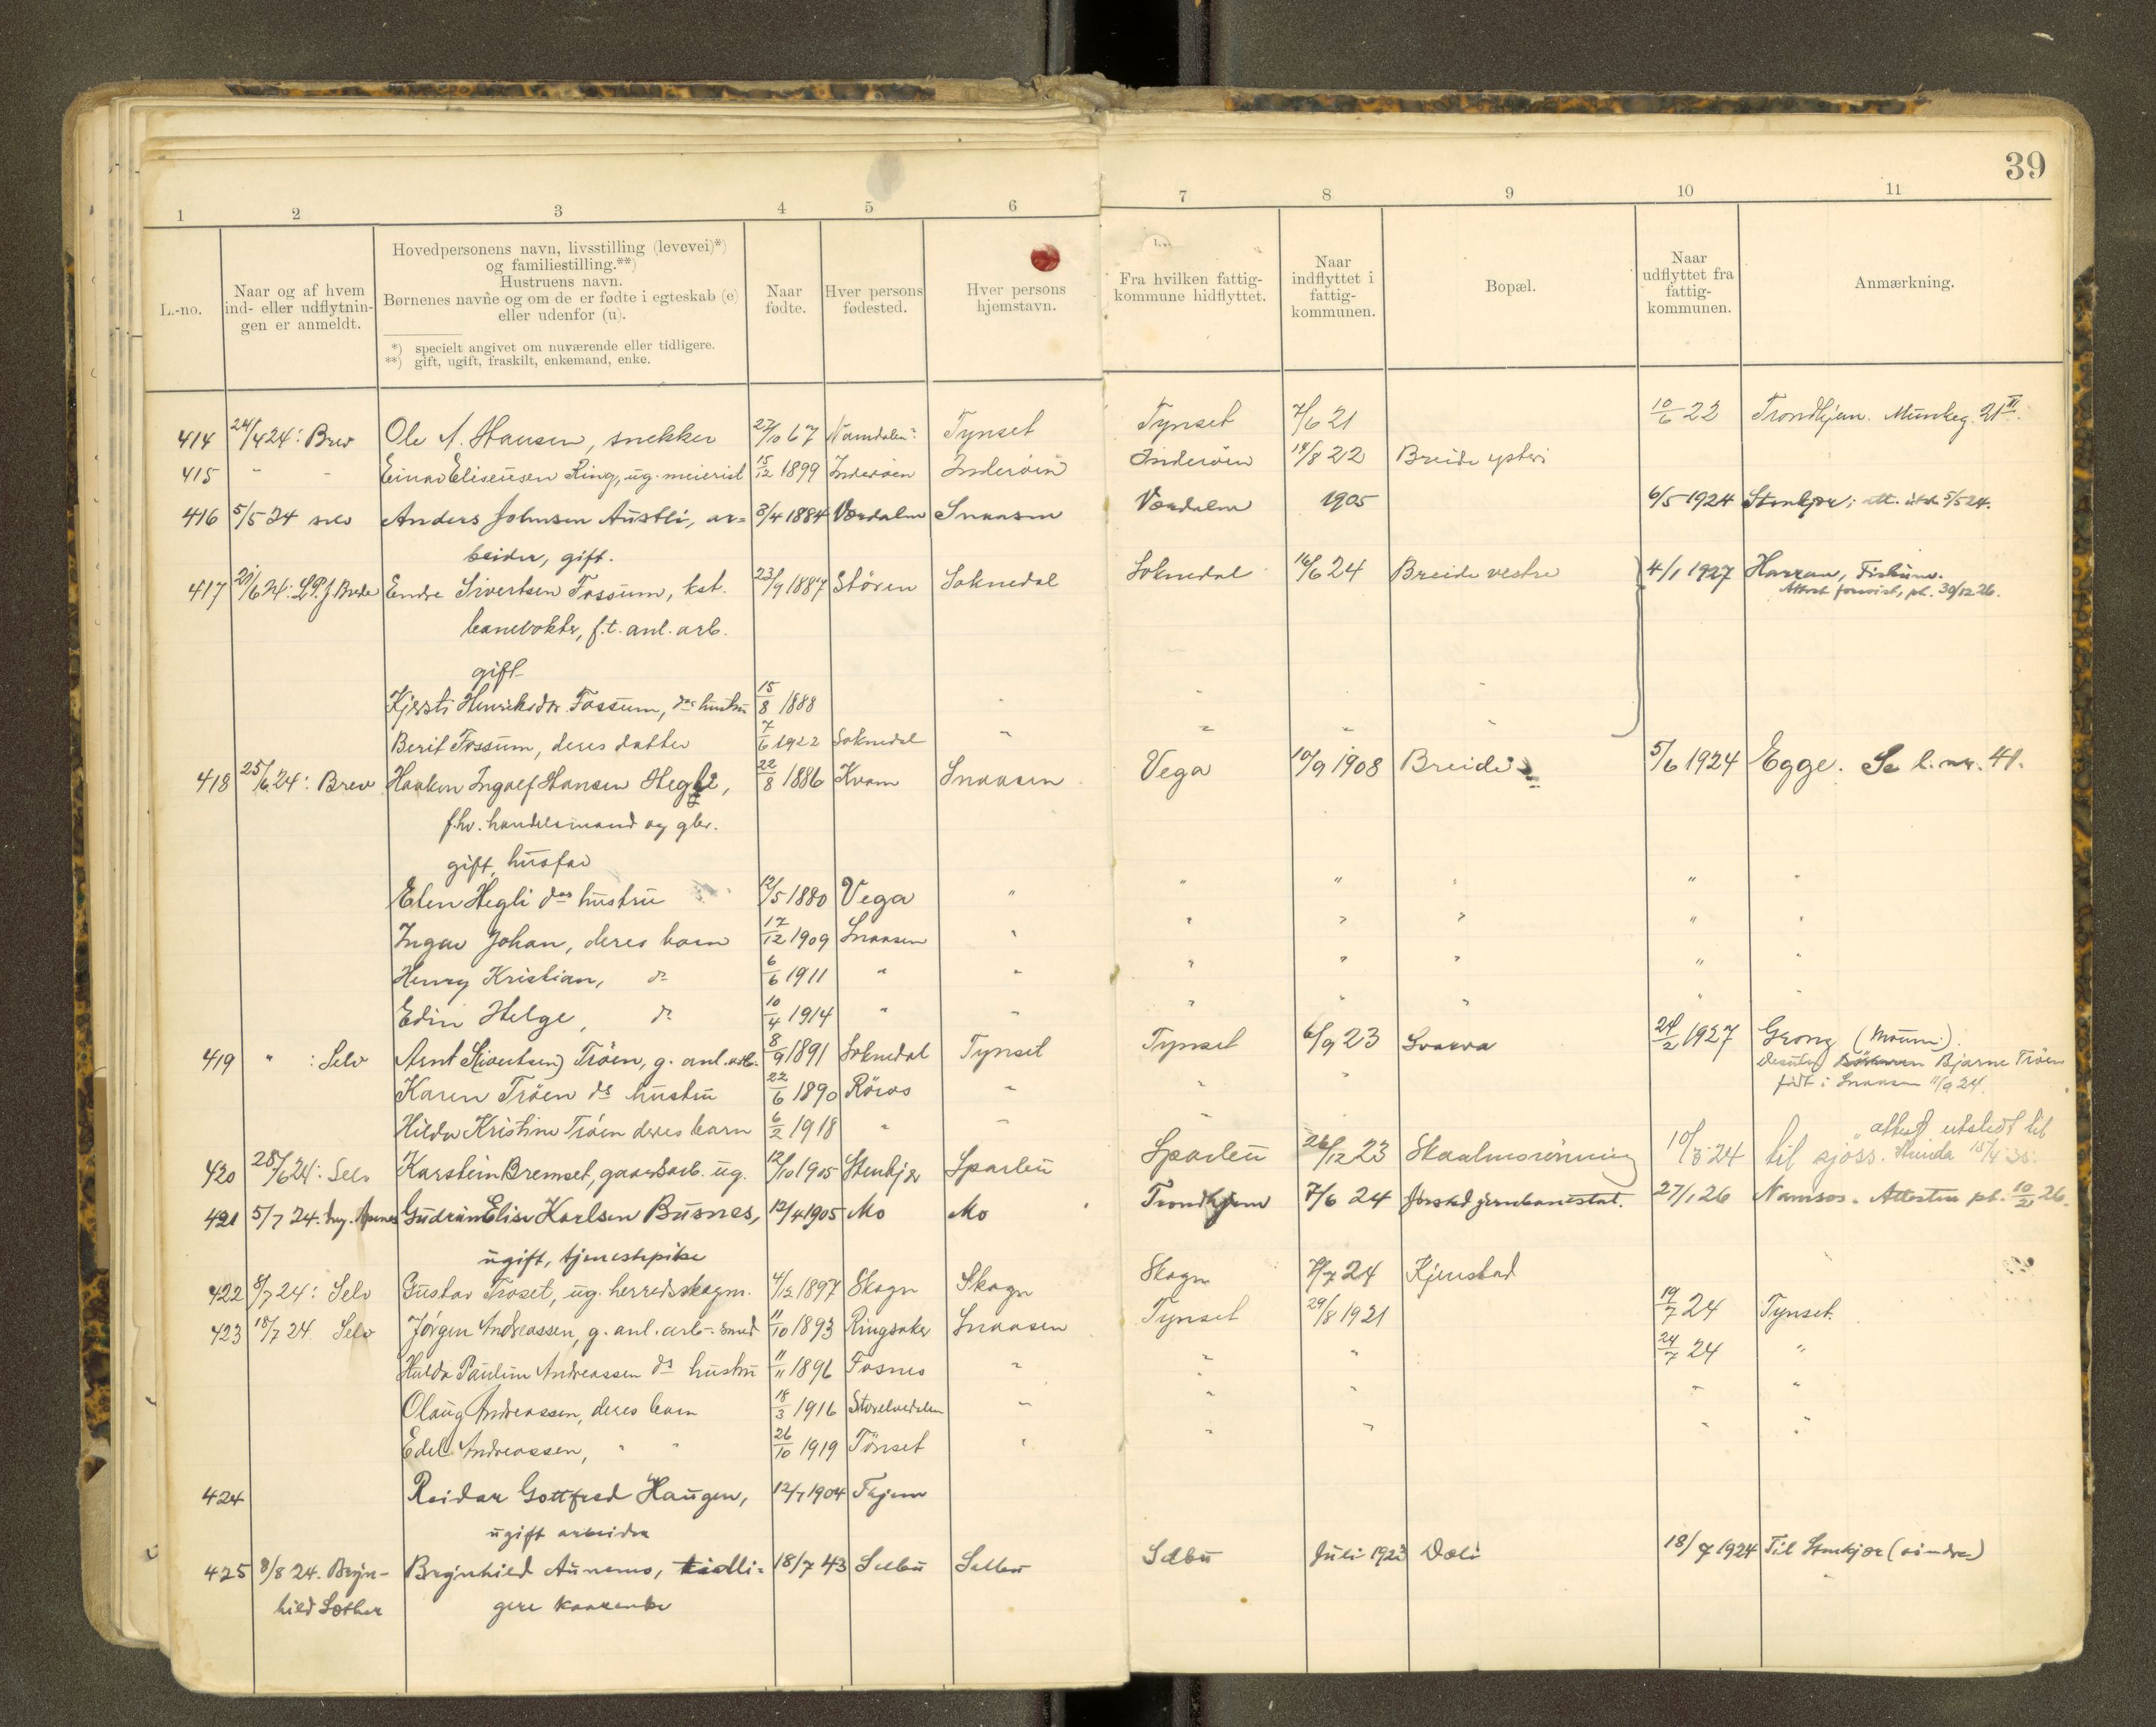 39
1 2 3 4 5 6 7 8 9 10 11
L.-no.
Naar og af hvem ind- eller udflytnin- gen er anmeldt.
Hovedpersonens navn, livsstilling (levevei)*) og familiestilling.**)
Hustruens navn.
Børnenes navne og om de er fødte i egteskab (e) eller udenfor (u).
*) specielt angivet om nuværende eller tidligere.
**) gift, ugift, fraskilt, enkemand, enke.
Naar fødte.
Hver persons fødested.
Hver persons hjemstavn.
Fra hvilken fattig- kommune hidflyttet.
Naar indflyttet i fattig- kommunen.
Bopæl.
Naar udflyttet fra fattig- kommunen.
Anmærkning.
414 24/4 24: Brev Ole A. Hansen, snekker 27/10 67 Namdalen? Tynset Tynset 7/6 21 10/6 22 Trondhjem. Munkeg. 21 III.
415 " " Einar Eliseusen Ring, ug. meierist 15/12 1899 Inderøen Inderøen Inderøen 14/8 22 Breide ysteri
416 5/5 24 selv Anders Johnsen Austli, ar= 3/4 1884 Værdalen Snaasen Værdalen 1905 6/5 1924 Stenkjær; att. utst. 5/5 24.
beider, gift.
417 21/6 24: L.P.J. Brede Endre Sivertsen Fossum, kst. 23/9 1887 Støren Soknedal Soknedal 16/6 24 Breide vestre 4/1 1927 Harran, Fiskum.
Attest forevist, pt. 30/12 26.
banevokter, f.t. anl. arb.
gift
Kjersti Henriksdtr. Fossum, ds hustru 15/8 1888 " " " "
Berit Fossum, deres datter 7/6 1922 Soknedal " " " "
418 25/6 24: Brev Haakon Ingolf Hansen Hegli, 22/8 1886 Kvam Snaasen Vega 10/9 1908 Breide 5/6 1924 Egge. Se l. nr. 41.
f.hv. handelsmand og gbr.
gift, husfar
Elen Hegli ds hustru 12/5 1880 Vega " " " " " "
Ingar Johan, deres barn 17/12 1909 Snaasen " " " " " "
Henry Kristian, do 6/6 1911 " " " " " " "
Edin Helge, do 10/4 1914 " " " " " " "
419 " : Selv Arnt S(ivertsen) Trøen, g. anl. arb. 8/9 1891 Soknedal Tynset Tynset 6/9 23 Svarva 24/2 1927 Grong (Moum).
Desuten Bjarne Trøen
født i Snaasen 11/9 24.
Karen Trøen ds hustru 22/6 1890 Røros " " "
Hilda Kristine Trøen deres barn 6/2 1918 " " "
attest utstedt til
420 28/6 24: Selv Karstein Bremset, gaardsarb. ug. 12/10 1905 Stenkjær Sparbu Sparbu 26/12 23 Skaalmorønning 10/8 24 til sjøss. Strinda 15/4
421 5/7 24. Gudrun Elise Karlsen Busnes, 12/4 1905 Mo Mo Trondhjem 7/6 24 Jørstad jernbanestat. 27/1 26 Namsos. Attesten pt. 10/2 26.
ugift, tjenestepike
422 8/7 24: Selv Gustav Troset, ug. herredsskogm. 4/12 1897 Skogn Skogn Skogn 7/7 24 Kjenstad
423 18/7 24. Selv Jørgen Andreassen, g. anl. arb.- smed 11/10 1893 Ringsaker Snaasen Tynset 29/8 1921 19/7 24 Tynset.
Hulda Pauline Andreassen ds hustru 11/11 1896 Fosnes " " " 24/7 24 "
Olaug Andreassen, deres barn 18/3 1916 Storelvedalen " " " " "
Edel Andreassen, " " 26/10 1919 Tønset " " " " "
424 Reidar Gottfred Haugen, 12/7 1904 Thjem
ugift arbeider
425 9/8 24. Bryn- Brynhild Aunemo, tidli= 18/7 43 Selbu Selbu Selbu Juli 1923 Dæli 18/7 1924 Til Stenkjær (søndre)
hild Sæther gere kaarenke